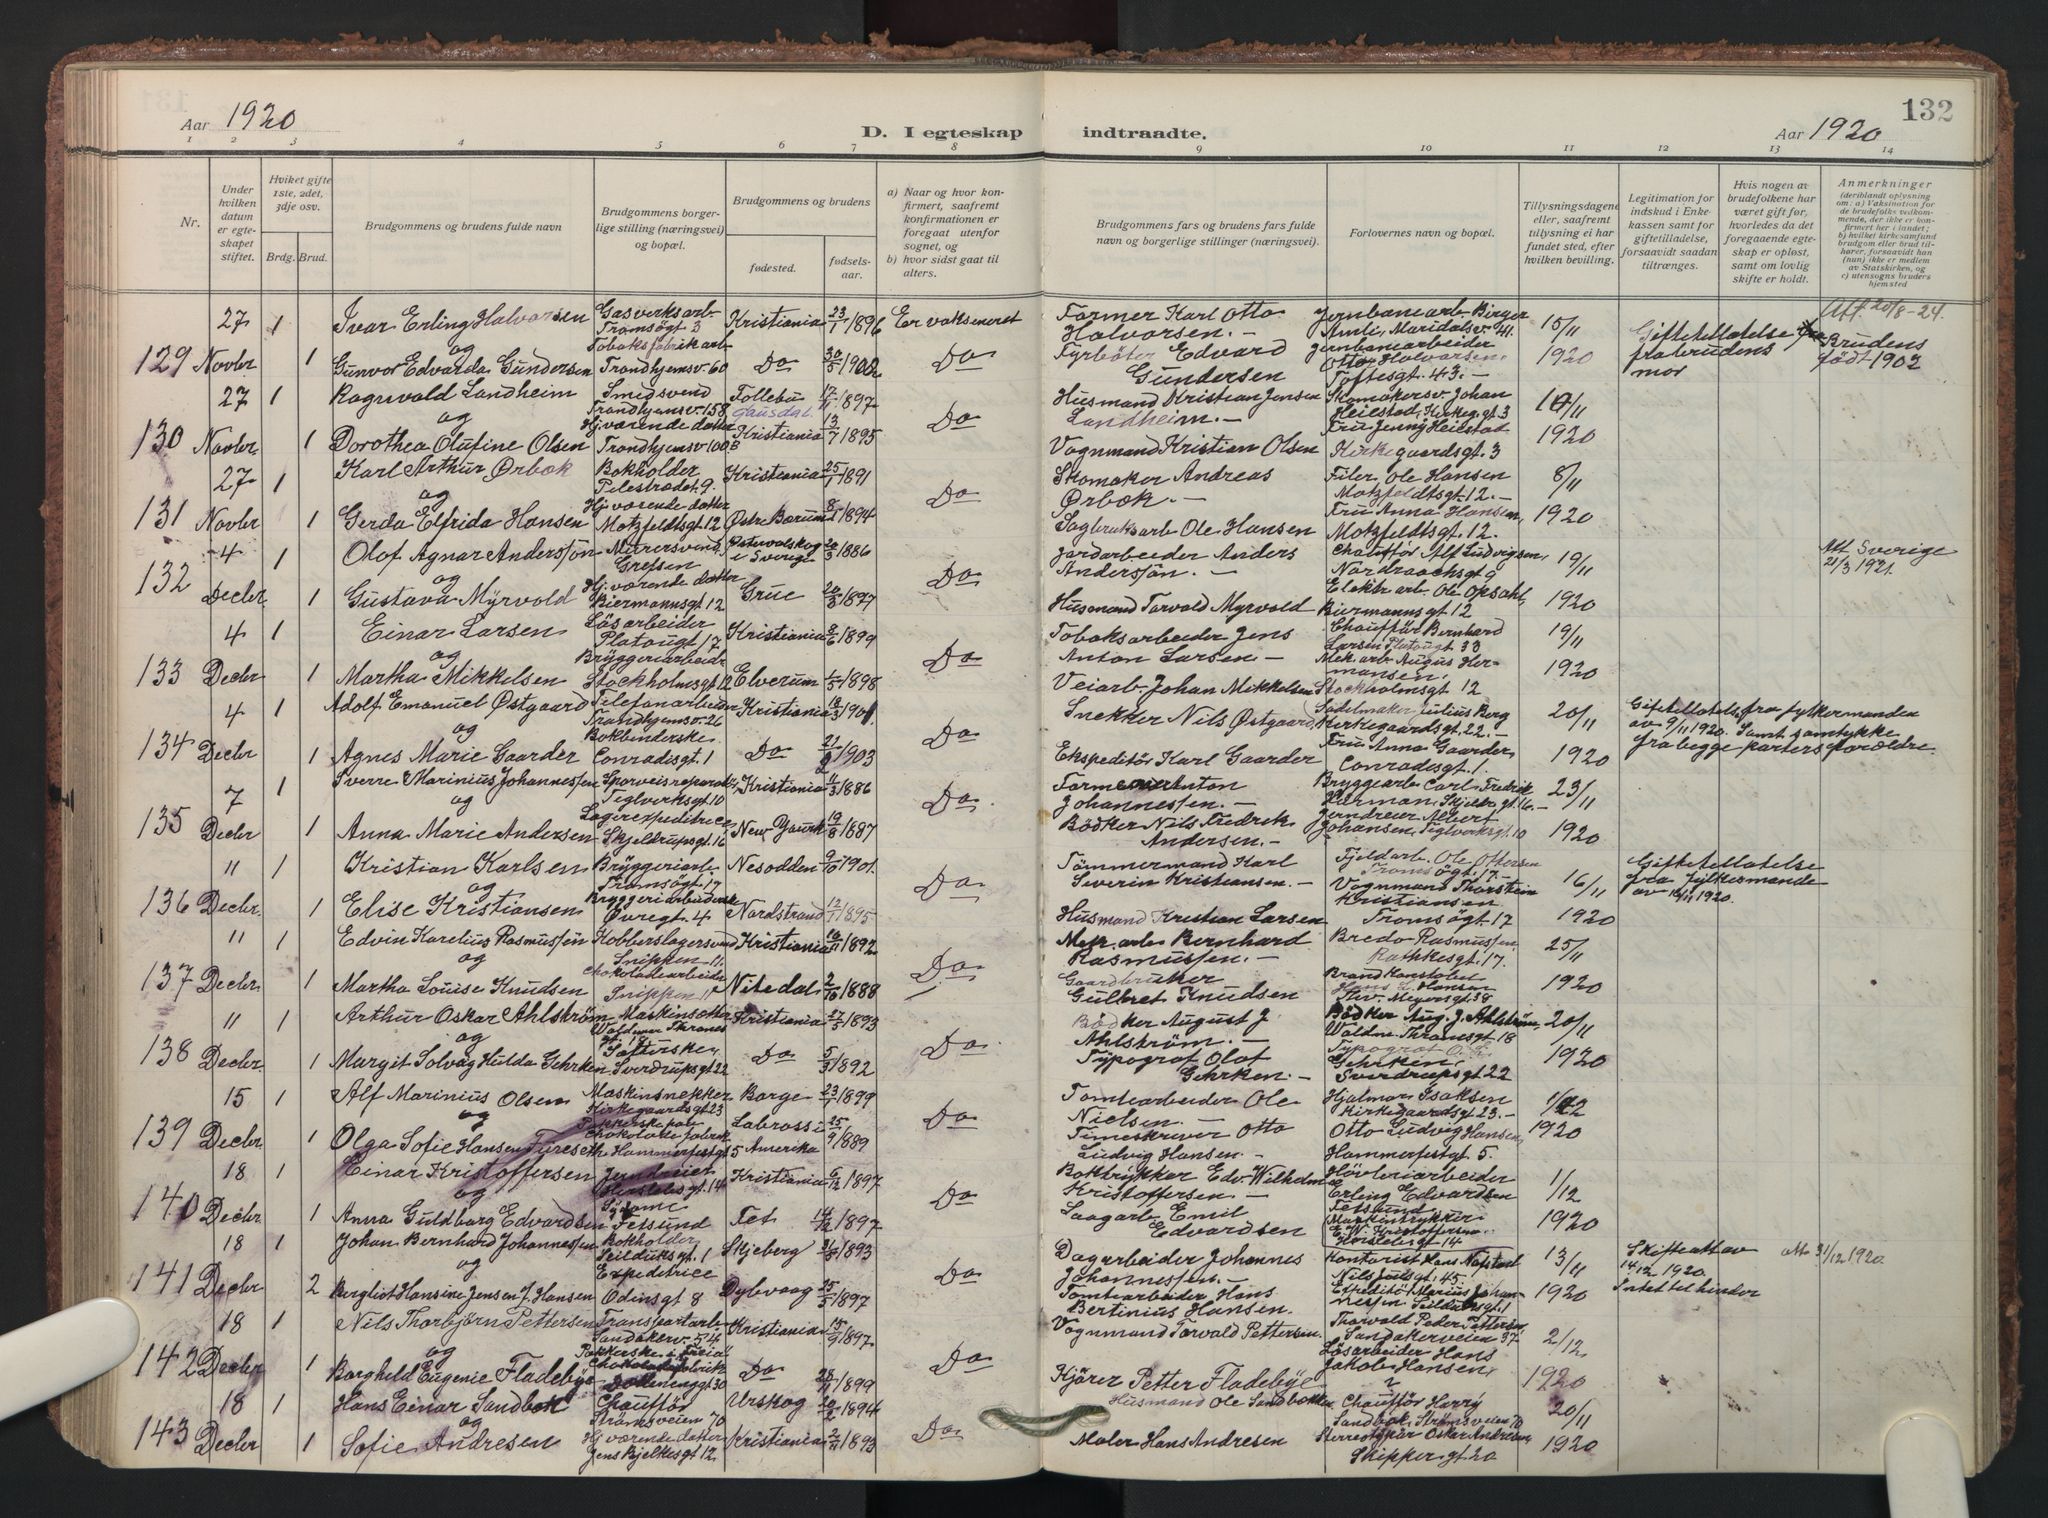 Aar 1920
D. I egteskap indtraadte.
132
Aar 1920
1 2 3 4 5 6 7 8 9 10 11 12 13 14
Nr.
Under hvilken datum er egteskapet stiftet.
Hvilket gifte 1ste, 2det, 3dje osv.
Brdg. Brud.
Brudgommens og brudens fulde navn
Brudgommens borgerlige stilling (næringsvei) og bopæl.
Brudgommens og brudens
fødested.
fødselsaar.
a) Naar og hvor konfirmert, saafremt konfirmationen er foregaat utenfor sognet, og
b) hvor sidst gaat til alters.
Brudgommens fars og brudens fars fulde navn og borgerlige stillinger (næringsvei).
Forlovernes navn og bopæl.
Tillysningsdagene eller, saafremt tillysning ei har fundet sted, efter hvilken bevilling.
Legitimation for indskud i Enkekassen samt for giftetilladelse, forsaavidt saadan tiltrænges.
Hvis nogen av brudefolkene har været gift før, hvorledes da det foregaaende egteskap er opløst, samt om lovlig skifte er holdt.
Anmerkninger
(deriblandt oplysning om: a) Vaksination for de brudefolks vedkommende, der ikke er konfirmert her i landet;
b) hvilket kirkesamfund brudgom eller brud tilhører, forsaavidt han (hun) ikke er medlem av Statskirken, og
c) utensogns bruders hjemsted
129 27 Novbr 1 Ivar Erling Halvorsen Gasverksarb. Tromsögt 3 Kristiania 23/1 1896 Er vaksineret Former Karl Otto Halvorsen. — Jernbanearb Birger Amli, Maridalsv. 41. 15/11 1920 Giftetillatelse fra brudens mor Att. 20/8-24.
og
1 Gunvor Edvarda Gundersen Tobaksfabrikarb Trondhjemsv. 60 Do 30/5 1902 Do Fyrböter Edvard Gundersen Jernbanearbeider Otto Halvorsen. Toftesgt. 43. — Brudens født 1902
130 27 Novbr 1 Ragnvald Landheim Smedsvend Trondhjemsv. 158 Follebu Gausdal 17/11 1897 Do Husmand Kristian Jensen Landheim. — Skomakersv. Johan Heiestad, Kirkeg.gt. 3 17/11 1920
og
1 Dorothea Olufine Olsen Hj.værende datter Trondhjemsv. 100B Kristiania 13/7 1895 Vognmand Kristian Olsen Fru Jenny Heiestad Kirkegaardsgt. 3
131 27 Novbr 1 Karl Arthur Ørbæk Bokholder Pilestrædet 9. Kristiania 25/1 1891 Do Skomaker Andreas Ørbæk. — Filer Ole Hansen Motzfeldtsgt. 12. — 8/11 1920
og
1 Gerda Elfrida Hansen Hj.værende datter Motzfeldtsgt. 12 Østre Bærum 1894 Sagbruksarb Ole Hansen Fru Anna Hansen, Motzfeldtsgt. 12.
132 4 Decbr 1 Olof Agnar Anderssön Murersvend Grefsen i Sverige 20/3 1886 Do Jordarbeider Anders Anderssön. — Chauffør Alf Ludvigsen, Nordraachsgt 9 19/11 1920 Att Sverige 21/3 1921.
og
1 Gustava Myrvold Hj.værende datter Biermannsgt 12 Grue 20/3 1897 Husmand Torvald Myrvold Elektr arb. Ole Opsahl, Biermannsgt 12
133 4 Decbr 1 Einar Larsen Lösarbeider Platougt. 17 Kristiania 8/6 1899 Do Tobaksarbeider Jens Anton Larsen — Chauffør Bernhard Larsen Platougt 33 19/11 1920
og
1 Martha Mikkelsen Bryggeriarbeider Stockholmsgt 12 Elverum 1898 Veiarb. Johan Mikkelsen Mek. arb August Hermansen. Stockholmsgt 12
134 4 Decbr 1 Adolf Emanuel Østgaard Telefonarbeider Trondhjemsv. 26 Kristiania 18/3 1901. Do Snekker Nils Østgaard, Sadelmaker Julius Berg Kirkegaardsgt. 22. — 20/11 1920 Giftetillatelse fra fylkesmanden av 9/11 1920. Samt samtykke fra begge parters forældre.
og
1 Agnes Marie Gaarder Bokbinderske Conradisgt. 1 Do 21/2 1903 Ekspeditör Karl Gaarder Fru Anna Gaarder Conradisgt. 1.
135 7 Decbr 1 Sverre Marinius Johannessen Sporveisreparatör Teglverksgt. 10 Kristiania 11/3 1886 Do. Former Anton Johannessen. — Bryggearb Carl Fredrik Herman, Skjeldr.gt. 16. — 23/11 1920
og
1 Anna Marie Andersen Lagerexpeditrice Skjeldrupsgt. 16 New Yourk 19/8 1887 Bödker Nils Fredrik Andersen. — Jerndreier Albert Johansen, Teglverksgt. 10
136 " Decbr. 1 Kristian Karlsen Bryggeriarb. Tromsögt. 17 Nesodden 9/10 1901. Do Tömmermand Karl Severin Kristiansen. — Fjeldarb. Ole Ottersen Tromsögt. 17. — 16/11 1920 Giftetillatelse fra fylkesmande av 16/11 1920.
og
1 Elise Kristiansen Bryggeriarbeiderske Øvregt. 4 Nordstrand 1895 Husmand Kristian Larsen Vognmand Thorstein Kristiansen Tromsögt. 17
137 " Decbr. 1 Edvin Karelius Rasmussen Kobberslagersvend Snippen 11. Kristiania 10/11 1892 Do Mek. arb Bernhard Rasmussen. — Bredo Rasmussen, Rathkesgt. 17. 25/11 1920
og
1 Martha Louise Knudsen Chokoladearbeider Snippen 11 Nitedal 2/10 1888 Gaardbruker Gulbret Knudsen Brandkonstabel Hans L. Hansen Thv. Meyersgt. 38
138 " Decbr. 1 Arthur Oskar Ahlström Maskinsetter Waldemar Thranes gt. 18 Kristiania 27/5 1893 Do. Bödker August J. Ahlström. — Bödker Aug. J. Ahlström, Waldm. Thranesgt 18 20/11 1920
og
1 Margit Solvåg Hulda Gehrken Sætterske, Sverdrupsgt 22 Do 5/3 1892 Typograf Olof Gehrken. — Typograf O. Gehrken. Sverdrupsgt. 22
139 15 Decbr 1 Alf Marinius Olsen Maskinsnekker Kirkegaardsgt 23 Borge 23/7 1899 Do Tomtearbeider Ole Nielsen. — Hjalmar Isaksen Kirkegaardsgt. 23. — 1/12 1920
og
1 Olga Sofie Hansen Fureseth Chokolade fabrik Hammerfestgt 5 Amerika 25/9 1889 Timeskriver Otto Ludvig Hansen. — Otto Ludvig Hansen, Hammerfestgt 5.
140 18 Decbr 1 Einar Kristoffersen Jerndreier Herslebsgt. 14 Kristiania 6/12 1897 Do Boktrykker Edv. Wilhelm Kristoffersen. — Hövleriarbeider Erling Edvardsen Fetsund. 1/12 1920
og
1 Anna Guldborg Edvardsen Fetsund Fet 14/12 1897 Saagarb Emil Edvardsen Maskintrykker E.W. Kristoffersen. Herslebsgt 14
141 18 Decbr 1 Johan Bernhard Johannessen Bokholder Seilduksgt. 1 Skjeberg 31/8 1893 Do Dagarbeider Johannes Johannessen. — Kontorist Hans Nils Juelsgt. 45. 13/11 1920 Skifteatt av 14/12 1920. Intet til hinder att 31/12 1920.
og
2 Bergliot Hansine Jensen f. Hansen Expeditrice Odinsgt 8 Dybvaag 25/5 1897 Tomtearbeider Hans Bertinius Hansen. Expeditör Marius Johannessen Seilduksgt. 1
142 18 Decbr 1 Nils Thorbjörn Pettersen Transportarb. Sandakerv. 54 Kristiania 15/9 1897. Do Vognmand Torvald Pettersen. Thorvald Peder Pettersen Sandakerveien 37 2/12 1920
og
1 Borghild Eugenie Fladebye Pakkerske i "Freia" Chokoladefabrik Do 28/11 1899 Kjörer Petter Fladebye Lösarbeider Hans Jakob Hansen,
143 18 Decbr 1 Hans Einar Sandbæk Chauffør Strömsveien 70 Urskog 20/2 1894 Do. Husmand Ole Sandbækken Chauffør Harry Sandbæk, Strömsveien 70 20/11 1920
og
1 Sofie Andresen Hj.værende datter Jens Bjelkesgt 12 Kristiania 1893 Maler Hans Andresen Stereotypör Oskar Andresen, Skippergt. 20